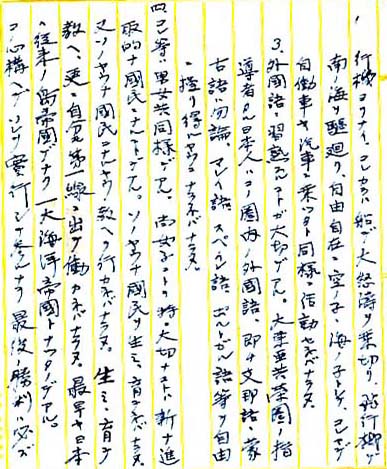 行機ヨリナイ、コレカラハ船デ大怒濤ヲ乗切リ、飛行機デ
南ノ海ヲ翔廻リ、自由自在ニ空ノ子海ノ子トシテ、コレマデ
自働車ヤ汽車ニ乗ツタト同様ニ活動セネバナラヌ。
3. 外國語ニ習熟スルコトガ大切デアル。大東亜共榮圏ノ指
導者タル日本人ハコノ圏内ノ外國語、即チ支那語、蒙
古語ハ勿論、マレイ語、スペイン語、ポルトガル語等ヲ自由
ニ操リ得ルヤウデナケネバナラヌ。
四、己等ハ男女共同様デアル。尚女子ニトリ特ニ大切ナコトハ新ナ進
取的ナ國民トナルト共ニ、ソノヤウナ國民ヲ生ミ、育テネバナラヌ。
又ソノヤウナ國民ニナルヤウ教ヘテ行カネバナラヌ。生ミ、育テ
教ヘ、更ニ自分モ第一線ニ出テ働カネバナラヌ。最早ヤ日本
ハ従来ノ島帝國デナク一大海洋帝國トナツタノデアル。
コノ心構ヘデソレヲ實行シテ参ルナラ最後ノ勝利ハ必ズ